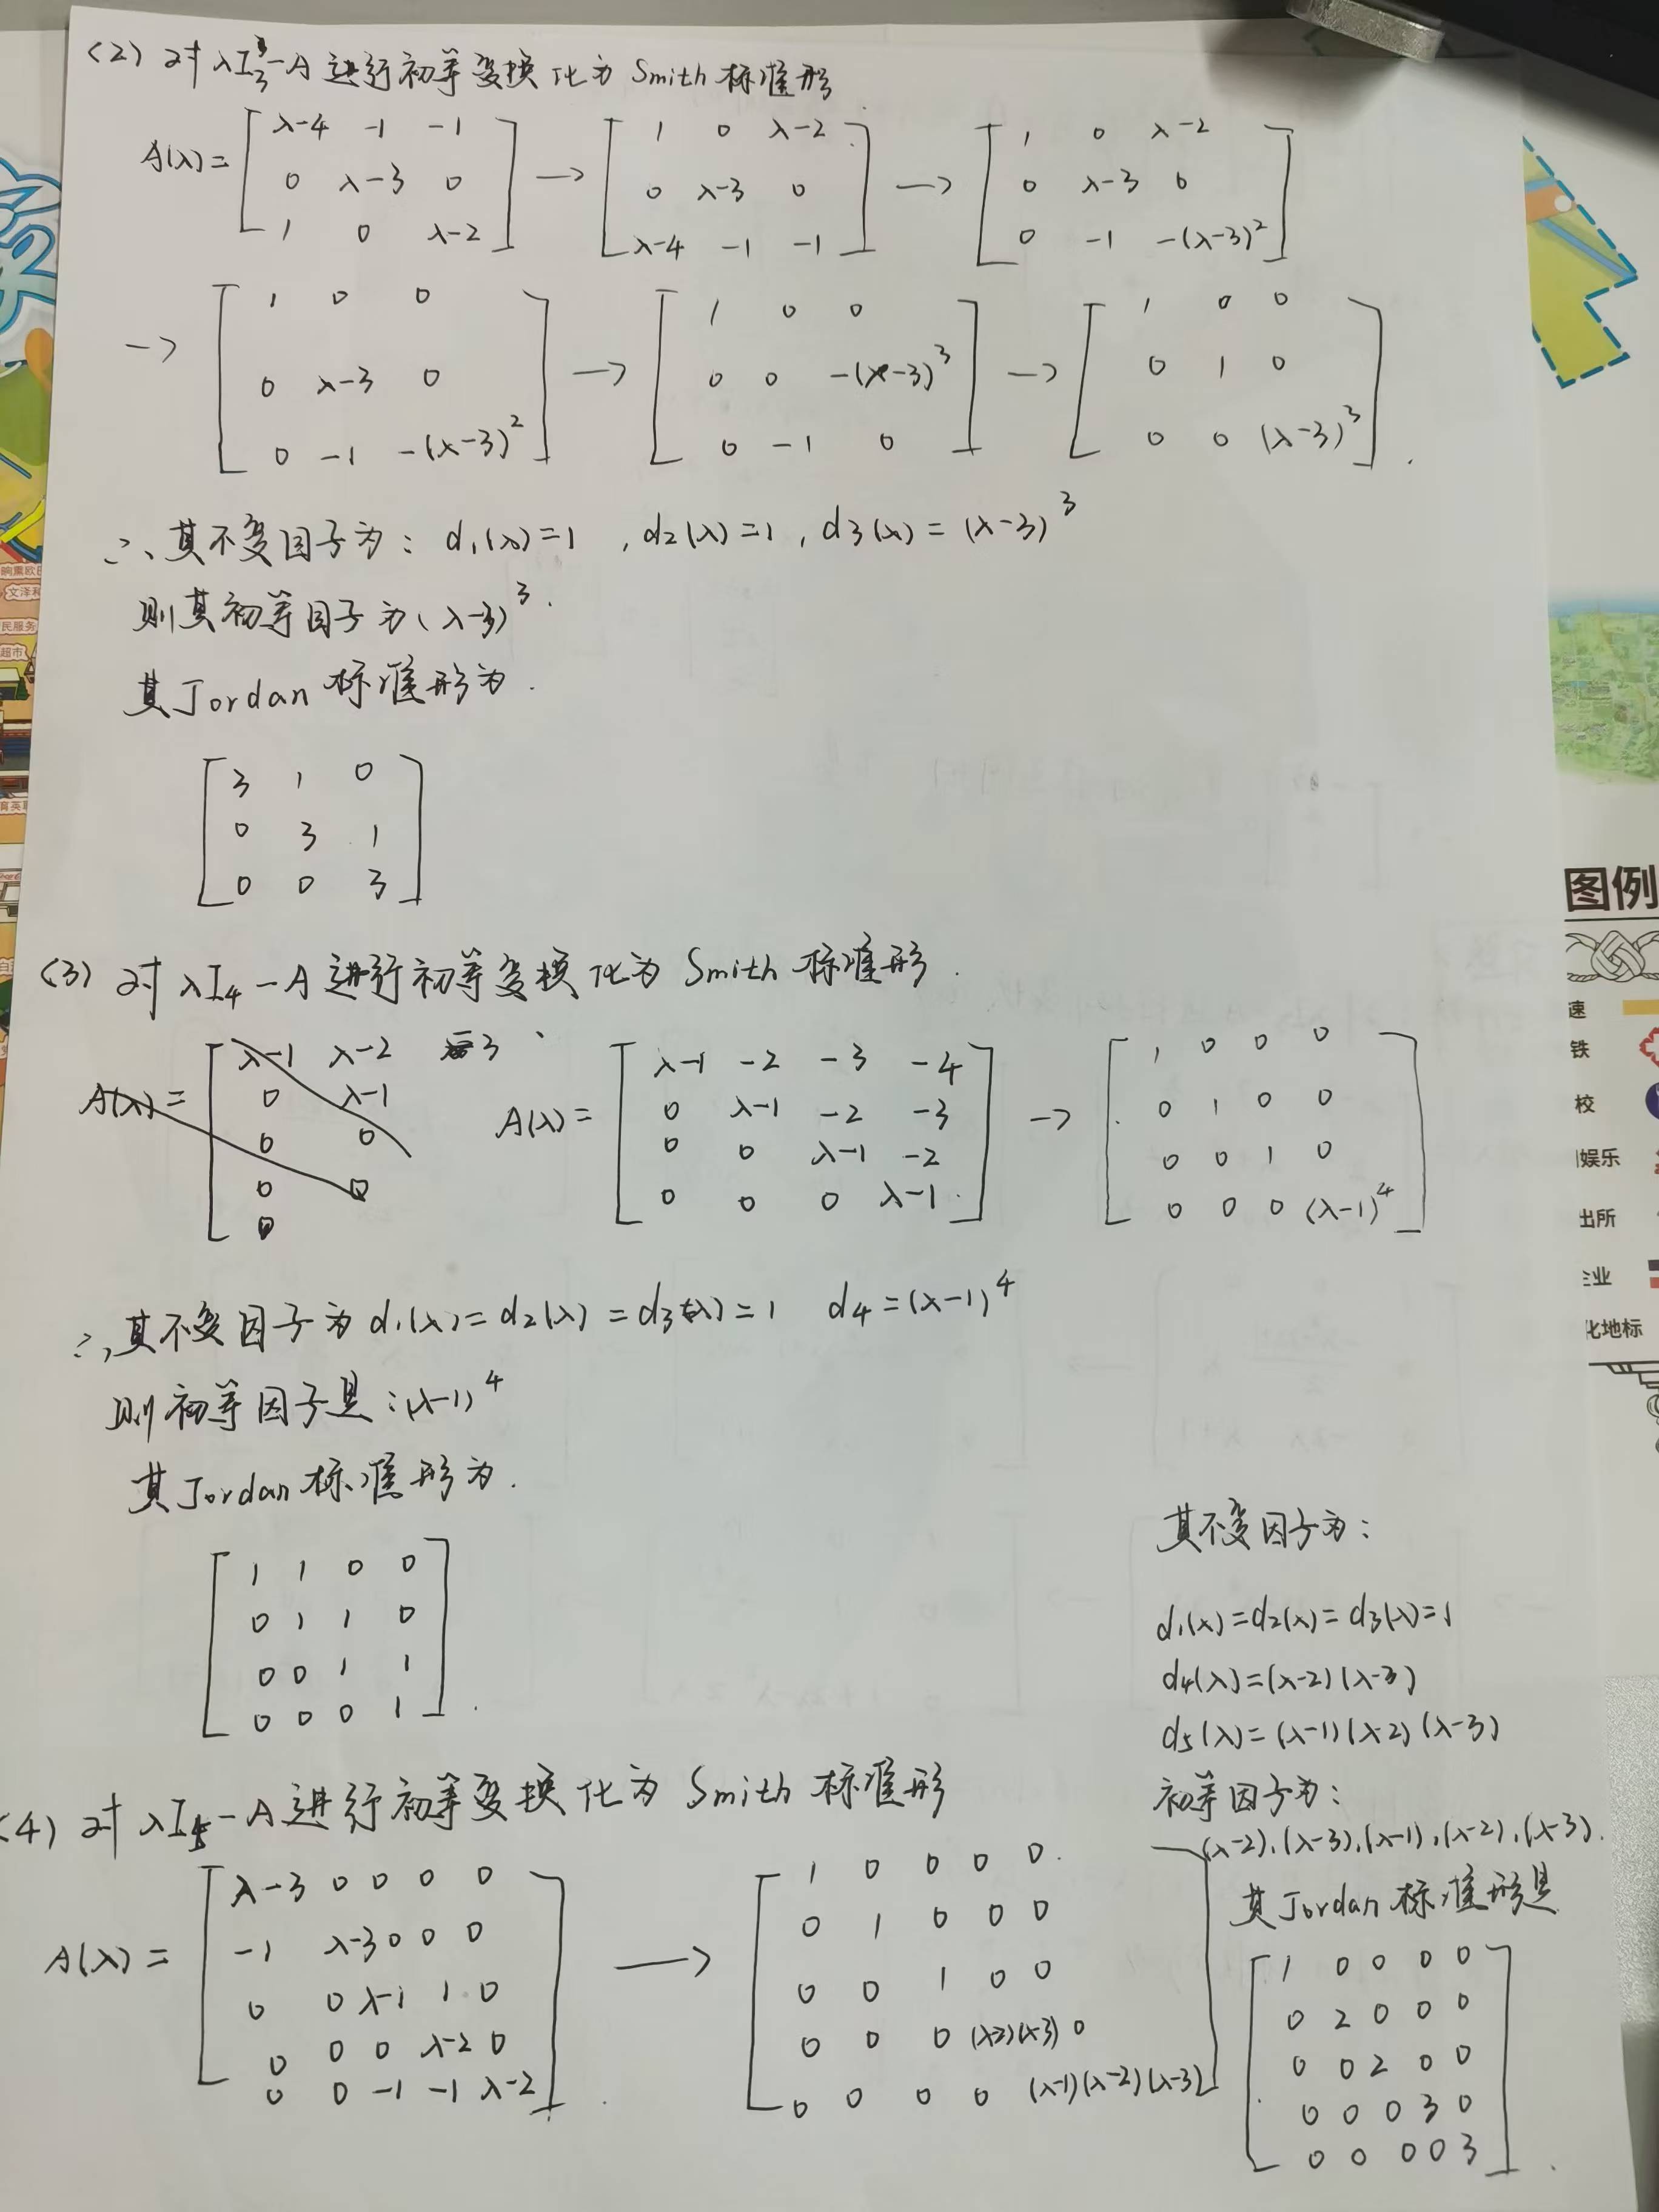 (2) 对 λI₃-A 进行初等变换化为 Smith 标准形
A(λ)= [ λ-4 -1 -1 ; 0 λ-3 0 ; 1 0 λ-2 ] → [ 1 0 λ-2 ; 0 λ-3 0 ; λ-4 -1 -1 ] → [ 1 0 λ-2 ; 0 λ-3 0 ; 0 -1 -(λ-3)² ]
→ [ 1 0 0 ; 0 λ-3 0 ; 0 -1 -(λ-3)² ] → [ 1 0 0 ; 0 0 -(λ-3)³ ; 0 -1 0 ] → [ 1 0 0 ; 0 1 0 ; 0 0 (λ-3)³ ] .
∴ 其不变因子为: d₁(λ)=1 , d₂(λ)=1 , d₃(λ) = (λ-3)³
则其初等因子为 (λ-3)³ .
其 Jordan 标准形为 .
[ 3 1 0 ; 0 3 1 ; 0 0 3 ]
(3) 对 λI₄-A 进行初等变换化为 Smith 标准形 .
A(λ)= [ λ-1 λ-2 3 ; 0 λ-1 ; 0 0 ; 0 0 ; 0
A(λ)= [ λ-1 -2 -3 -4 ; 0 λ-1 -2 -3 ; 0 0 λ-1 -2 ; 0 0 0 λ-1 ] → [ 1 0 0 0 ; 0 1 0 0 ; 0 0 1 0 ; 0 0 0 (λ-1)⁴ ]
∴ 其不变因子为 d₁(λ)=d₂(λ)=d₃(λ)=1 d₄=(λ-1)⁴
则初等因子是:(λ-1)⁴
其 Jordan 标准形为 .
[ 1 1 0 0 ; 0 1 1 0 ; 0 0 1 1 ; 0 0 0 1 ] .
(4) 对 λI₅-A 进行初等变换化为 Smith 标准形
A(λ)= [ λ-3 0 0 0 0 ; -1 λ-3 0 0 0 ; 0 0 λ-1 1 0 ; 0 0 0 λ-2 0 ; 0 0 -1 -1 λ-2 ] → [ 1 0 0 0 0 ; 0 1 0 0 0 ; 0 0 1 0 0 ; 0 0 0 (λ-2)(λ-3) 0 ; 0 0 0 0 (λ-1)(λ-2)(λ-3) ]
其不变因子为:
d₁(λ)=d₂(λ)=d₃(λ)=1
d₄(λ)=(λ-2)(λ-3)
d₅(λ)=(λ-1)(λ-2)(λ-3)
初等因子为:
(λ-2),(λ-3),(λ-1),(λ-2),(λ-3).
其 Jordan 标准形是
[ 1 0 0 0 0 ; 0 2 0 0 0 ; 0 0 2 0 0 ; 0 0 0 3 0 ; 0 0 0 0 3 ] .
图例
速
铁
校
娱乐
出所
企业
化地标
文泽
民服务
超市